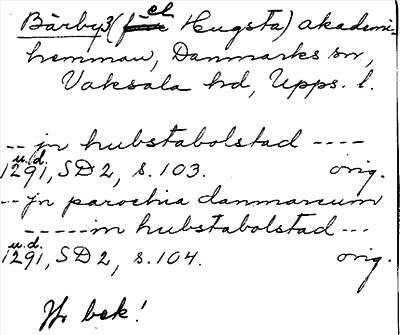 Bärby 3 (el Hugsta) akademi-
hemman, Danmarks sn,
Vaksala hd, Upps. l.
-- jn hubstabolstad ----
u.d.
1291, SD 2, s. 103. orig.
-- jn parochia danmarcum
----- in hubstabolstad ---
u.d.
1291, SD 2, s. 104. orig.
bek!